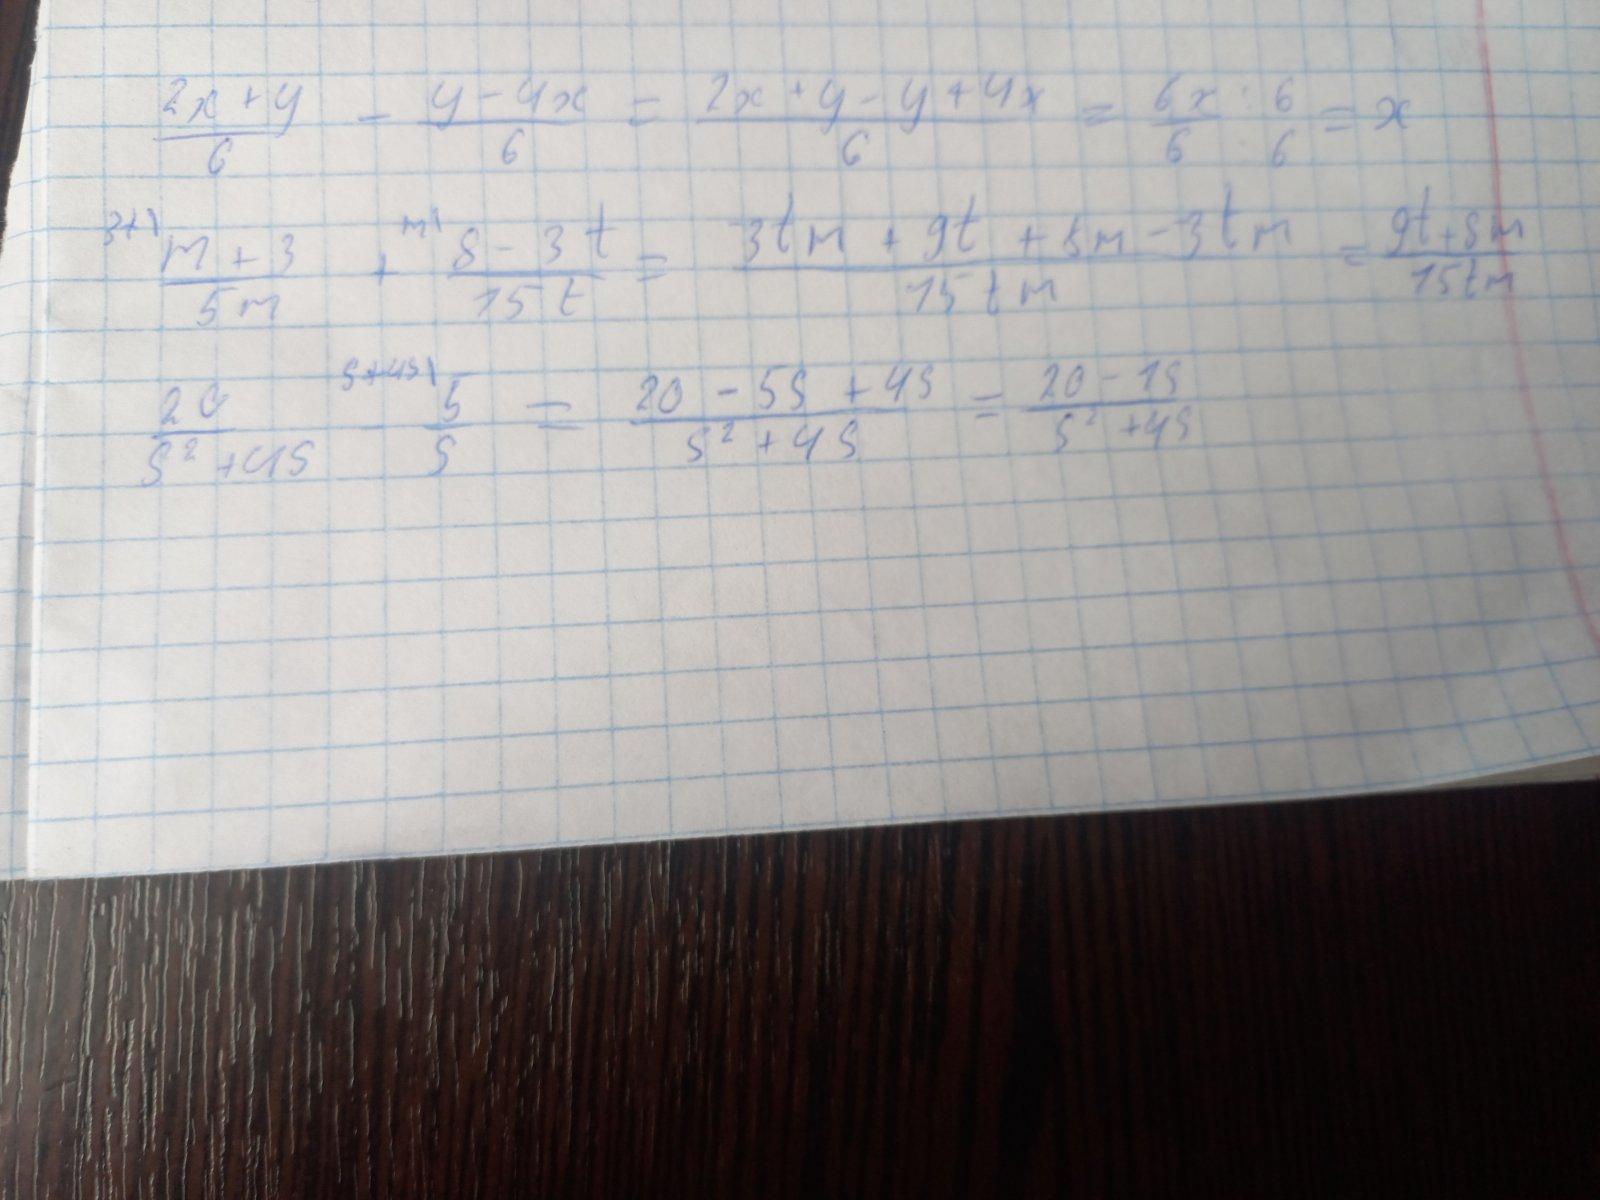 (2x+y)/6 - (y-4x)/6 = (2x+y-y+4x)/6 = 6x/6 : 6/6 = x
3t) (m+3)/5m + m) (8-3t)/15t = (3tm+9t+8m-3tm)/15tm = (9t+8m)/15tm
20/(s²+4s) - s+4s) 5/s = (20-5s+4s)/(s²+4s) = (20-1s)/(s²+4s)